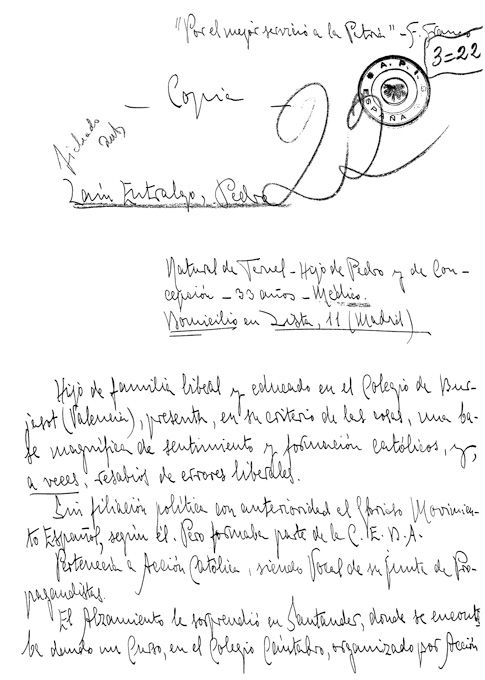 "Por el mejor servicio a la Patria" - F. Franco
3=22
A.P.I.S.
ESPAÑA
- Copia -
fichado
Laín Entralgo, Pedro
Natural de Teruel - Hijo de Pedro y de Con-
cepción - 33 años - Médico.
Domicilio en Lista, 11 (Madrid)
Hijo de familia liberal y educado en el Colegio de Bur-
jasot (Valencia), presenta, en su criterio de las cosas, una ba-
se magnífica de sentimiento y formación católicos, y,
a veces, resabios de errores liberales.
Sin filiación política con anterioridad al Glorioso Movimien-
to Español, según él. Pero formaba parte de la C.E.D.A.
Pertenecía a Acción Católica, siendo Vocal de su Junta de Pro-
pagandistas.
El Alzamiento le sorprendió en Santander, donde se encontra-
ba dando un Curso, en el Colegio Cántabro, organizado por Acción